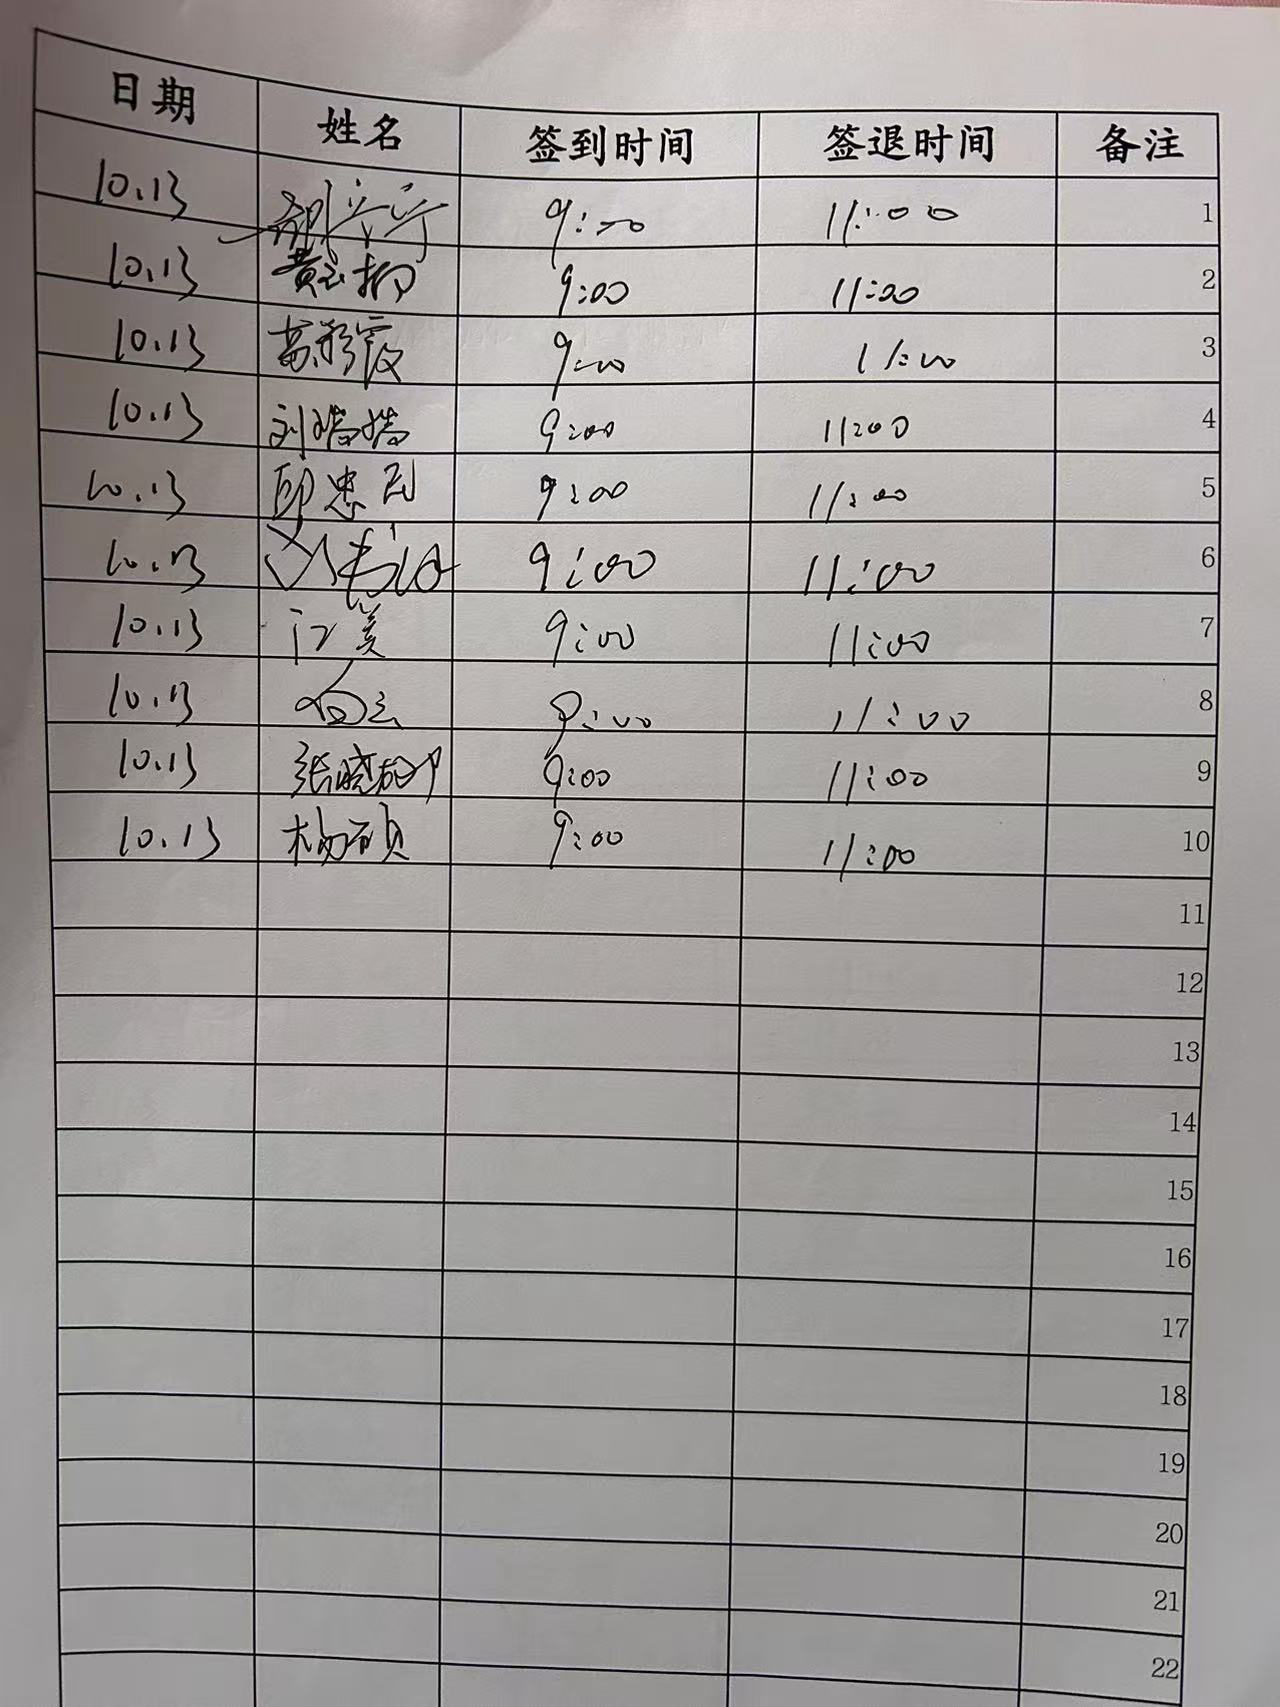 日期 姓名 签到时间 签退时间 备注
10.13 9:00 11:00 1
10.13 9:00 11:00 2
10.13 9:00 11:00 3
10.13 刘婧婧 9:00 11:00 4
10.13 邱忠 9:00 11:00 5
10.13 9:00 11:00 6
10.13 江美 9:00 11:00 7
10.13 白云 9:00 11:00 8
10.13 张晓 9:00 11:00 9
10.13 杨硕 9:00 11:00 10
11
12
13
14
15
16
17
18
19
20
21
22